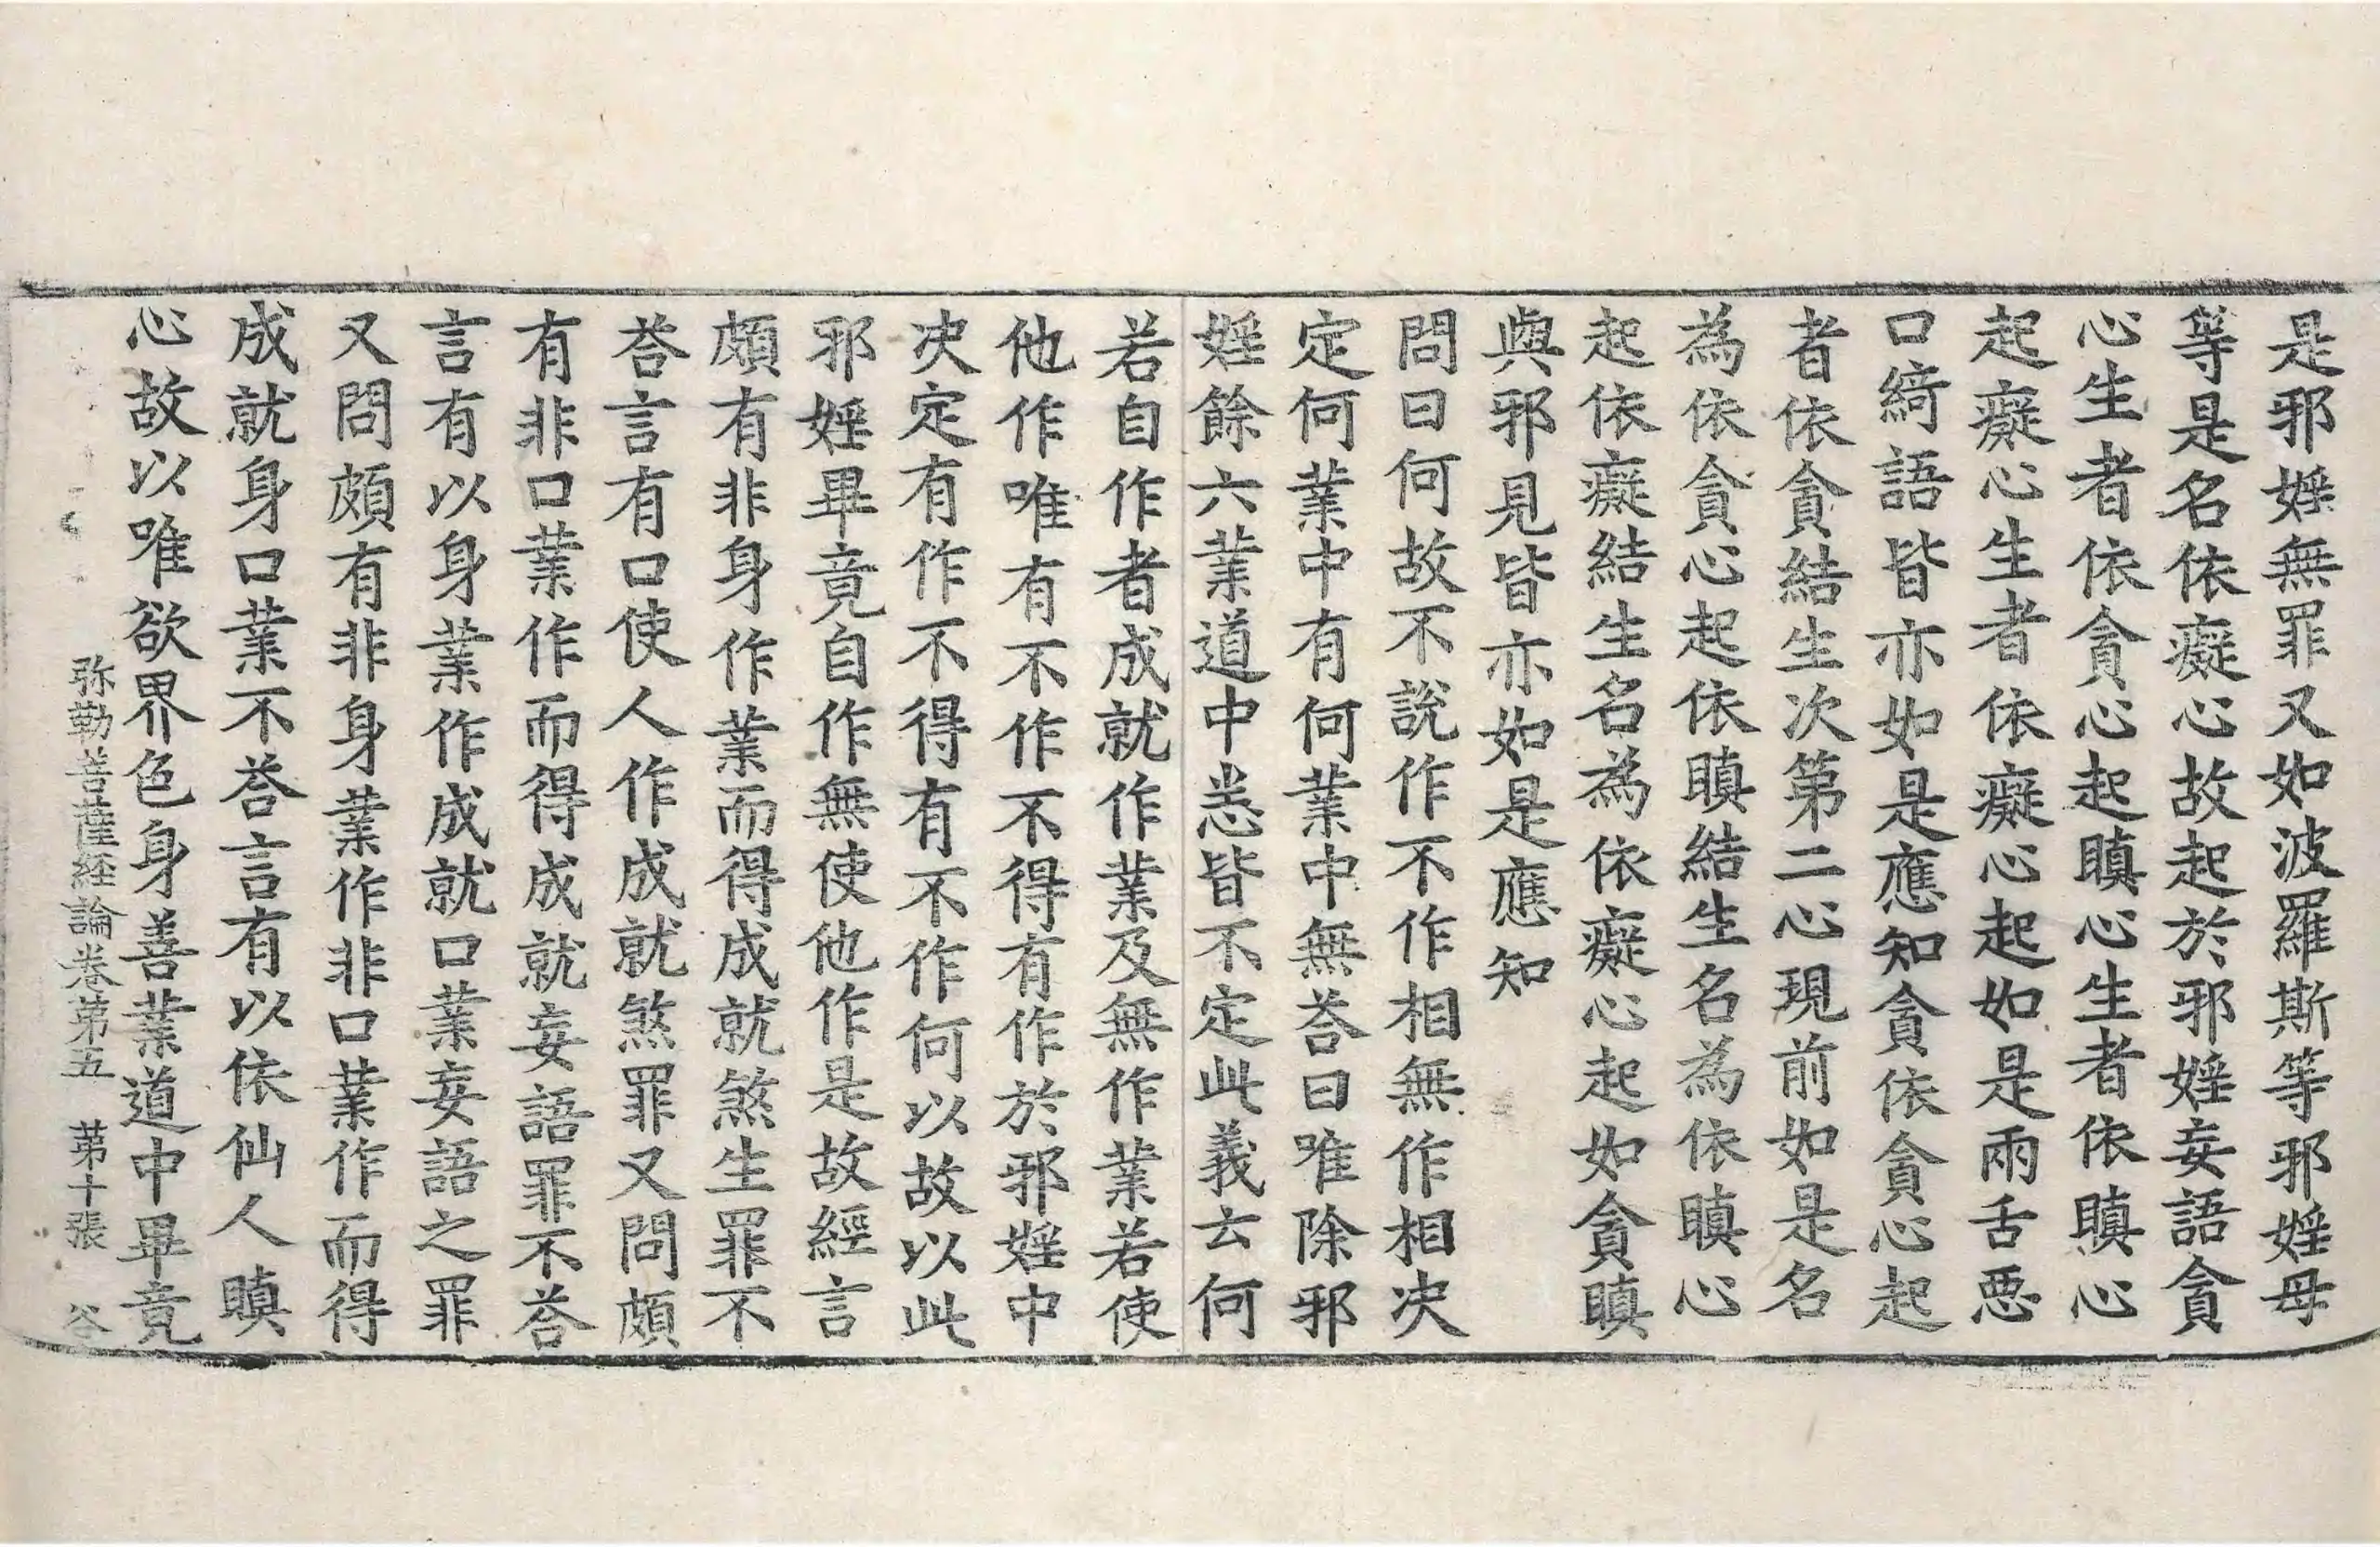 是邪婬無罪又如波羅斯等邪婬母
等是名依癡心故起於邪婬妄語貪
心生者依貪心起瞋心生者依瞋心
起癡心生者依癡心起如是兩舌惡
口綺語皆亦如是應知貪依貪心起
者依貪結生次第二心現前如是名
為依貪心起依瞋結生名為依瞋心
起依癡結生名為依癡心起如貪瞋
與邪見皆亦如是應知
問曰何故不說作不作相無作相决
定何業中有何業中無荅曰唯除邪
婬餘六業道中悉皆不定此義云何
若自作者成就作業及無作業若使
他作唯有不作不得有作於邪婬中
决定有作不得有不作何以故以此
邪婬畢竟自作無使他作是故經言
頗有非身作業而得成就煞生罪不
荅言有口使人作成就煞罪又問頗
有非口業作而得成就妄語罪不荅
言有以身業作成就口業妄語之罪
又問頗有非身業作非口業作而得
成就身口業不荅言有以依仙人瞋
心故以唯欲界色身善業道中畢竟
弥勒菩薩経論卷第五　第十張　谷